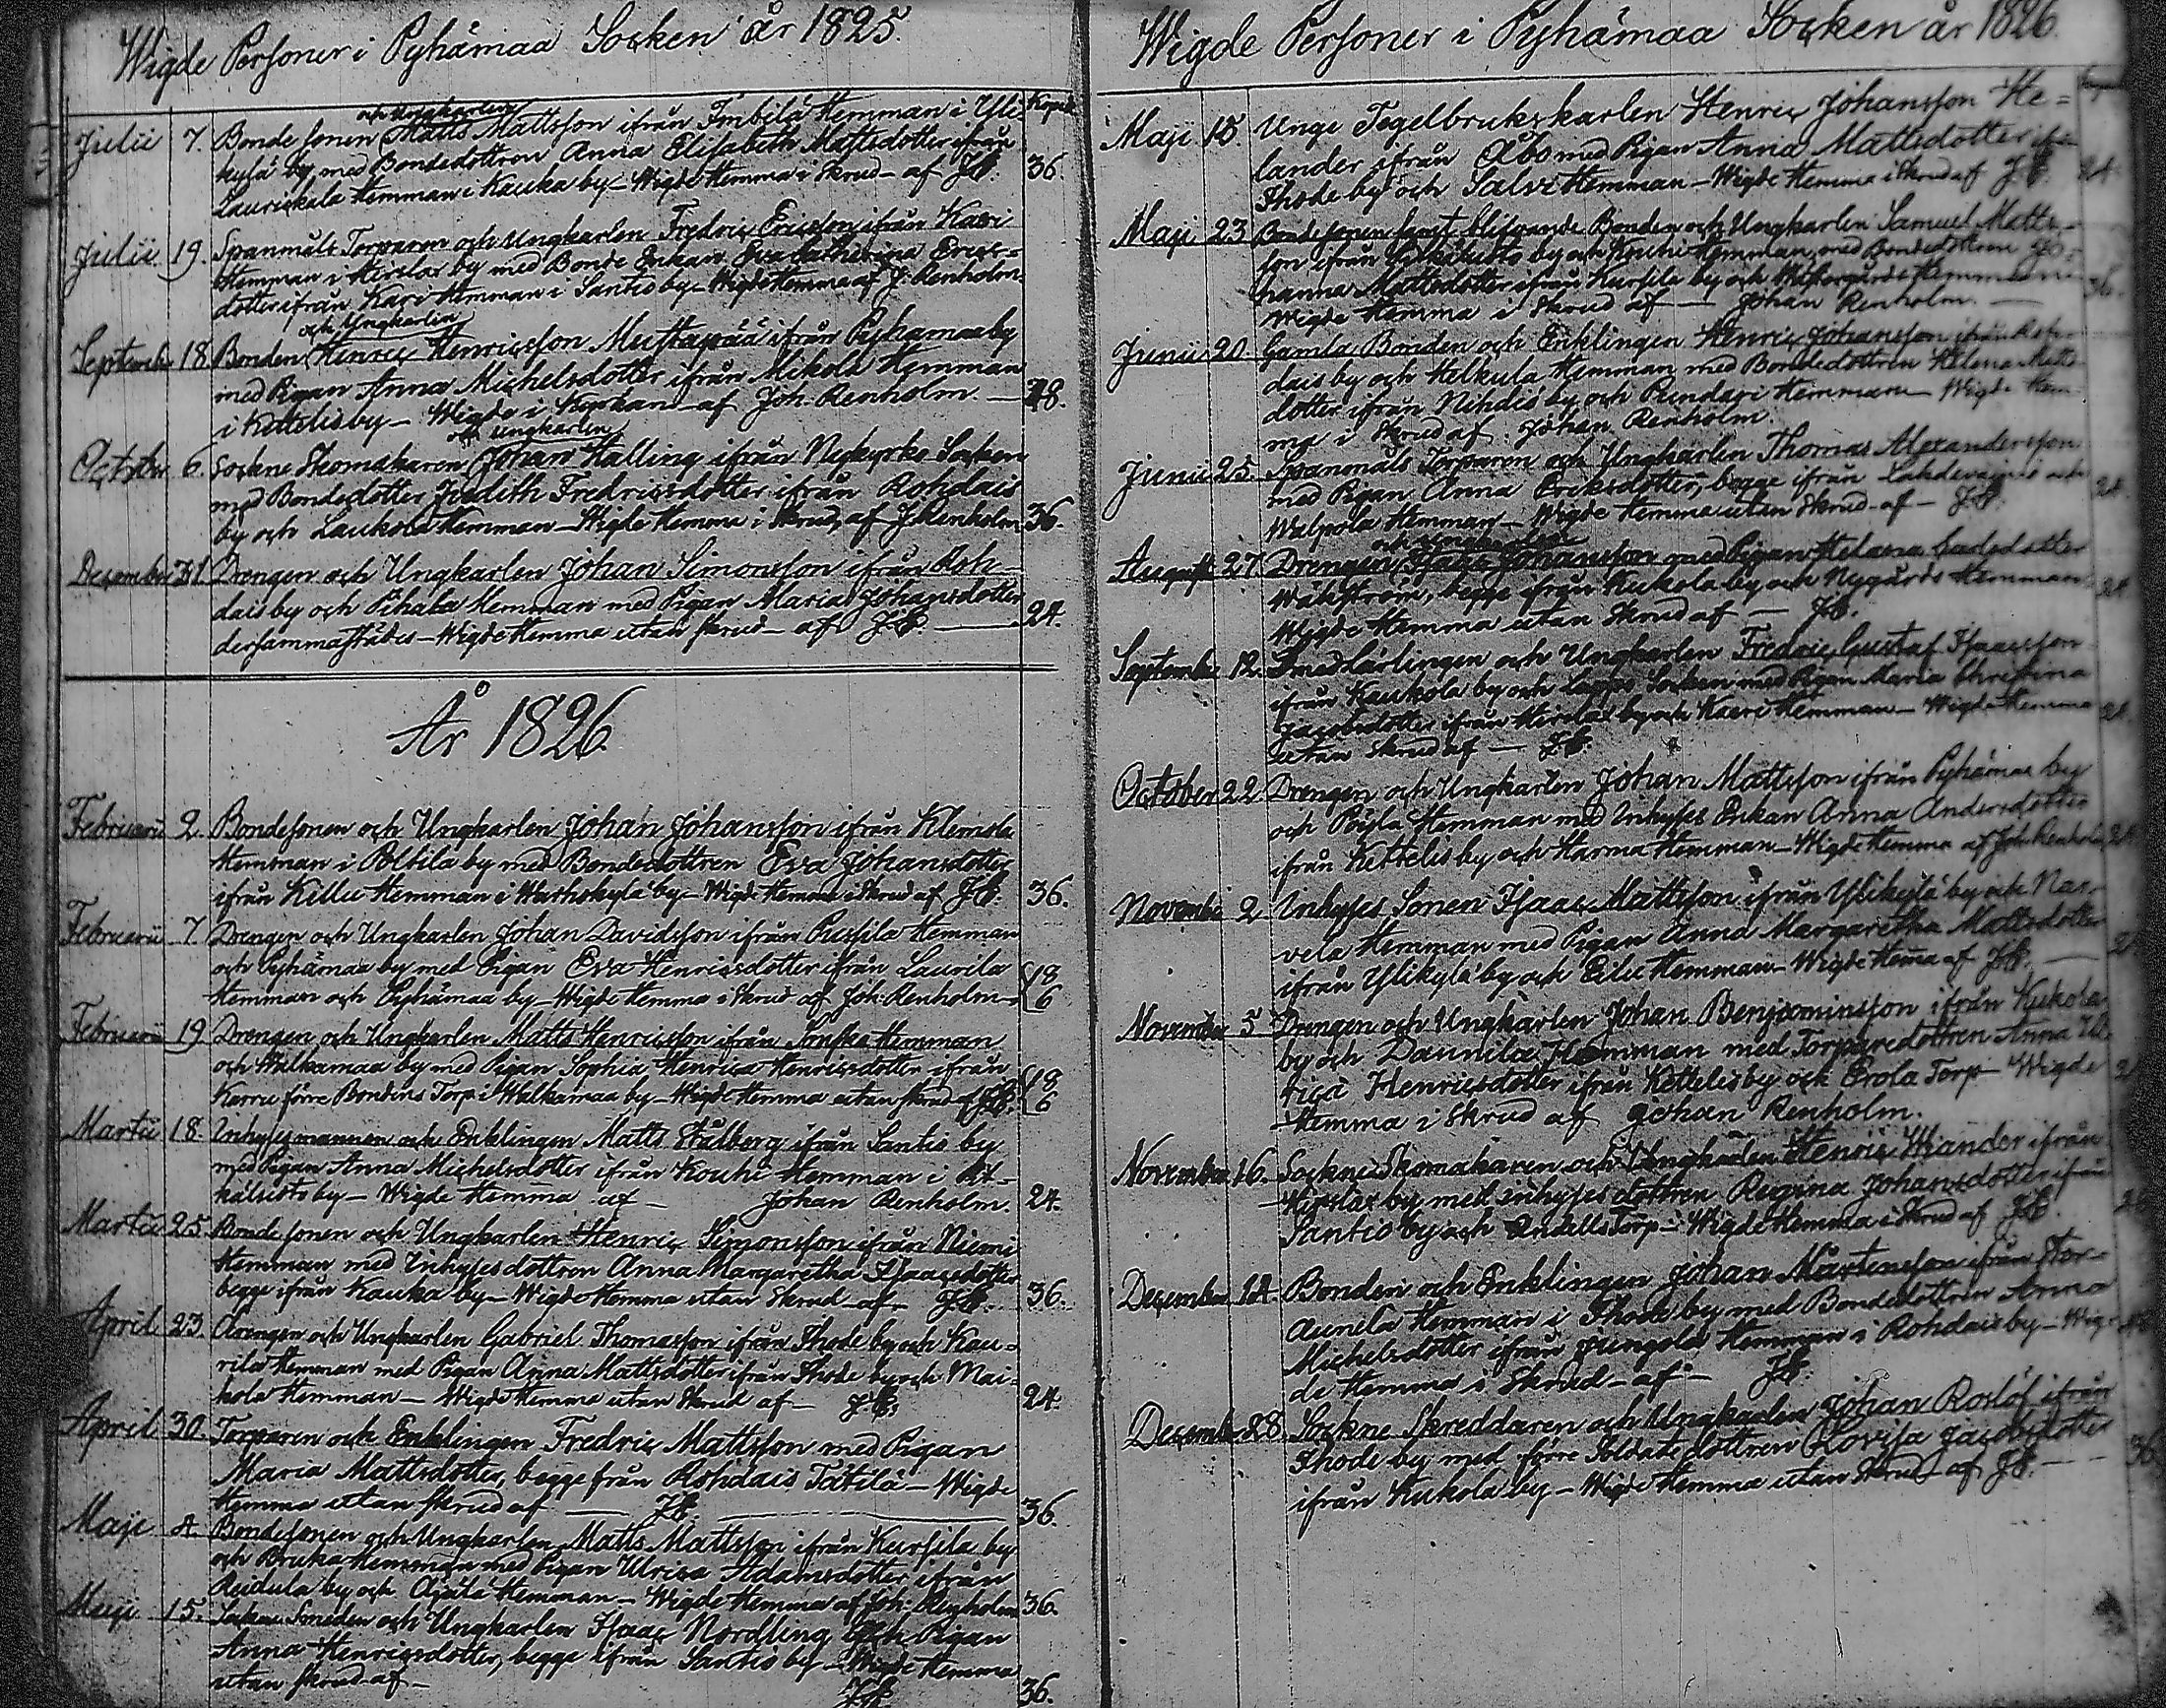 Wigde Personer i Pyhämaa Socken år 1825.
Kopek
och Ungkarlen
Julii 7. Bonde sonen Matts Mattsson ifrån Imbilä Hemman i Yli-
kylä by med Bondedottren Anna Elisabeth Mattsdotter ifrån
Laurikala Hemman i Kauka by - Wigde Hemma i Skrud - af JR. 36.
Julii 19. Spanmåls Torparen och Ungkarlen Fredric Ericsson ifrån Kari
Hemman i Hirslax by med Bonde Enkan Eva Catharina Erics-
dotter ifrån Kari Hemman i Santio by - Wigde Hemma af J. Renholm.
och Ungkarlen
Septemb 18 Bonden Henric Henricsson Mustapää ifrån Pyhämaa by
med Pigan Anna Michelsdotter ifrån Mikola Hemman
i Kettelis by - Wigde i Kyrkan - af Joh. Renholm. 48.
och ungkarlen
October 6. Sockne Skomakaren Johan Halling ifrån Nykyrko Socken
med Bondedotter Judith Fredricsdotter ifrån Rohdais
by och Laukola Hemman - Wigde Hemma i Skrud, af J. Renholm 36.
December 31 Drengen och Ungkarlen Johan Simonsson ifrån Roh-
dais by och Pihala Hemman med Pigan Maria Johansdotter
dersammastädes - Wigde Hemma utan skrud - af JR. 24.
År 1826
Februarii 2. Bondesonen och Ungkarlen Johan Johansson ifrån Klemola
Hemman i Poltila by med Bondedottren Eva Johansdotter
ifrån Killu Hemman i Warhokylä by - Wigde Hemma i Skrud af JR. 36.
Februarii 7. Drengen och Ungkarlen Johan Davidsson ifrån Pussila Hemman
och Pyhämaa by med Pigan Eva Henricsdotter ifrån Laurila
Hemman och Pyhämaa by - Wigde Hemma i Skrud af Joh. Renholm 18 6
Februarii 19 Drengen och Ungkarlen Matts Henricsson ifrån Hemman
och Walkamaa by med Pigan Sophia Henrica Henricsdotter ifrån
Karru förre Bondens Torp i Walkamaa by - Wigde Hemma utan skrud af JR. 18 6
Martii 18. Inhysesmannen och Enklingen Matts Stålberg ifrån Santio by
med Pigan Anna Michelsdotter ifrån Kouhi Hemman i Pit-
käluoto by - Wigde Hemma af - Johan Renholm. 24.
Martii 25 Bonde sonen och Ungkarlen Henric Simonsson ifrån Niemi
Hemman med Inhyses dottren Anna Margaretha Isaacsdotter
begge ifrån Kauka by - Wigde Hemma utan Skrud - af - JR. 36.
April 23. Drengen och Ungkarlen Gabriel Thomasson ifrån Ihode by och Kau-
rila Hemman med Pigan Anna Mattsdotter ifrån Ihode by och Mai-
kola Hemman - Wigde Hemma utan Skrud af - JR. 24.
April 30. Torparen och Enklingen Fredric Mattsson med Pigan
Maria Mattsdotter, begge från Rohdais Tätilä - Wigde
Hemma utan skrud af JR. 36.
Maji 4 Bondesonen och Ungkarlen Matts Mattsson ifrån Kursila by
och Bruka Hemman med Pigan Ulrica Adamsdotter ifrån
Reidula by och Hemman - Wigde Hemma af Joh. Renholm 36.
Maji 15. Sockne Smeden och Ungkarlen Isaac Nordling och Pigan
Anna Henricsdotter, begge ifrån Santio by - Wigde Hemma
utan skrud af - JR. 36.
Wigde Personer i Pyhämaa Socken år 1826.
Maji 15. Unge Tegelbrukskarlen Henric Johansson He-
lander ifrån Åbo med Pigan Anna Mattsdotter ifrån
Ihode by och Salvi Hemman - Wigde Hemma i Skrud af JR. 24.
Maji 23 Bondesonen samt blifvande Bonden och Ungkarlen Samuel Matts-
son ifrån Pitkäluoto by och Kouhi Hemman med Bondedottren Jo-
hanna Mattsdotter ifrån Kursila by och Hemman
Wigde Hemma i Skrud af Johan Renholm. 36.
Junii 20. Gamla Bonden och Enklingen Henric Johansson ifrån Roh-
dais by och Helkula Hemman med Bondedottren Helena Matts-
dotter ifrån Nihdiö by och Pundari Hemman - Wigde Hem-
ma i Skrud af Johan Renholm.
Junii 25. Spanmåls Torparen och Ungkarlen Thomas Alexandersson
med Pigan Anna Ericsdotter, begge ifrån och
Walpola Hemman - Wigde Hemma utan Skrud - af - JR. 24.
och Ungkarlen
August 27. Drengen Isaac Johansson med Pigan Helaena Carlsdotter
Wahlström, begge ifrån Kukola by och Nygårds Hemman
Wigde Hemma utan Skrud af - JR. 24
September 12. Smedlärlingen och Ungkarlen Fredric Gustaf Isaacsson
ifrån Kaukola by och Lappo Socken med Pigan Maria Christina
Jacobsdotter ifrån Hirslax by och Kari Hemman - Wigde Hemma
utan Skrud af - JR. 24
October 22. Drengen och Ungkarlen Johan Mattsson ifrån Pyhämaa by
och Pöylä Hemman med Inhyses Enkan Anna Andersdotter
ifrån Kettelis by och Harma Hemman - Wigde Hemma af Joh. Renholm 24
November 2 Inhyses Sonen Isaac Mattsson ifrån Ylikylä by och Nar-
vela Hemman med Pigan Anna Margaretha Mattsdotter
ifrån Ylikylä by och Eilu Hemman - Wigde Hemma af JR. 24
November 5 Drengen och Ungkarlen Johan Benjaminsson ifrån Kukola
by och Daunila Hemman med Torparedottren Anna Ul-
rica Henricsdotter ifrån Kettelis by och Erola Torp - Wigde
Hemma i Skrud af Johan Renholm.
November 16. Sockne Skomakaren och Ungkarlen Henric Wiander ifrån
Hirslax by med inhyses dottren Regina Johansdotter ifrån
Santio by och Torp - Wigde Hemma i Skrud af JR.
December 14. Bonden och Enklingen Johan Mårtensson ifrån Stor-
Aunela Hemman i Ihode by med Bondedottren Anna
Michelsdotter ifrån Jungola Hemman i Rohdais by - Wig-
de Hemma i Skrud - af - JR.
December 28. Sockne Skreddaren och Ungkarlen Johan Roslöf ifrån
Ihode by med förre Soldats dottren Lovisa Jacobsdotter
ifrån Kukola by - Wigde Hemma utan Skrud - af JR. 36